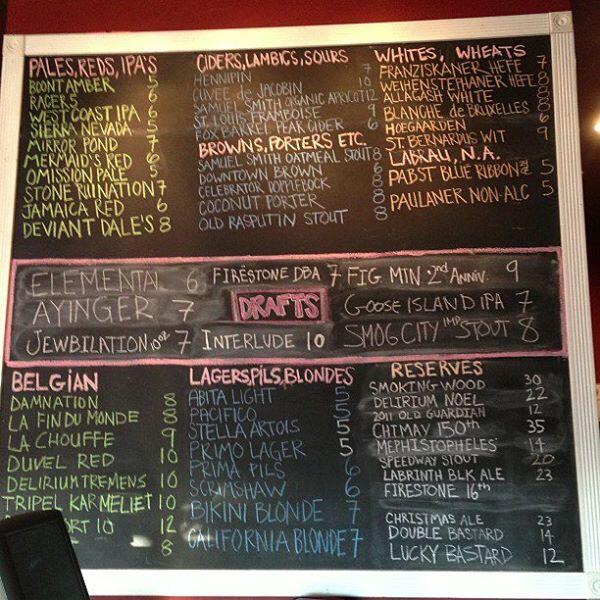 PALES, REDS, IPA'S
BOONT AMBER 5
RACER 5 6
WEST COAST IPA 6
SIERRA NEVADA 5
MIRROR POND 7
MERMAID'S RED 6
OMISSION PALE 5
STONE RUINATION 7
JAMAICA RED 6
DEVIANT DALE'S 8
CIDERS, LAMBICS, SOURS
HENNIPIN 7
CUVEE de JACOBIN 10
SAMUEL SMITH ORGANIC APRICOT 12
ST. LOUIS FRAMBOISE 9
FOX BARREL PEAR CIDER 6
BROWNS, PORTERS ETC.
SAMUEL SMITH OATMEAL STOUT 8
DOWNTOWN BROWN 6
CELEBRATOR DOPPLEBOCK 8
COCONUT PORTER 6
OLD RASPUTIN STOUT 8
WHITES, WHEATS
FRANZISKANER HEFE 7
WEIHENSTEPHANER HEFE 8
ALLAGASH WHITE 8
BLANCHE de BRUXELLES 8
HOEGAARDEN 6
ST. BERNARDUS WIT 9
LABRAU, N.A.
PABST BLUE RIBBON 5
PAULANER NON-ALC 5
ELEMENTAL 6
AYINGER 7
JEWBILATION 10oz 7
FIRESTONE DBA 7
DRAFTS
INTERLUDE 10
FIG MTN 2nd ANNIV. 9
GOOSE ISLAND IPA 7
SMOG CITY IMP STOUT 8
BELGIAN
DAMNATION 8
LA FIN DU MONDE 8
LA CHOUFFE 9
DUVEL RED 10
DELIRIUM TREMENS 10
TRIPEL KARMELIET 10
10 12
8
LAGERS, PILS, BLONDES
ABITA LIGHT 5
PACIFICO 5
STELLA ARTOIS 5
PRIMO LAGER 5
PRIMA PILS 6
SCRIMSHAW 6
BIKINI BLONDE 7
CALIFORNIA BLONDE 7
RESERVES
SMOKING WOOD 30
DELIRIUM NOEL 22
2011 OLD GUARDIAN 12
CHIMAY 150th 35
MEPHISTOPHELES' 14
SPEEDWAY STOUT 20
LABRINTH BLK ALE 23
FIRESTONE 16th
CHRISTMAS ALE 23
DOUBLE BASTARD 14
LUCKY BASTARD 12